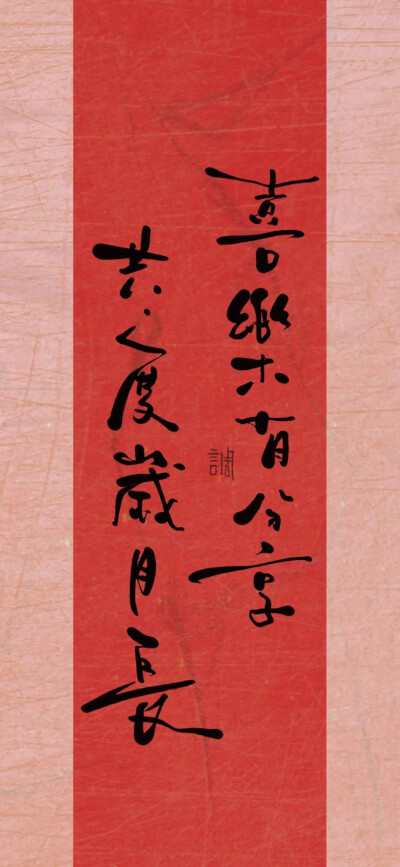 喜樂有分享
共心度歲月長